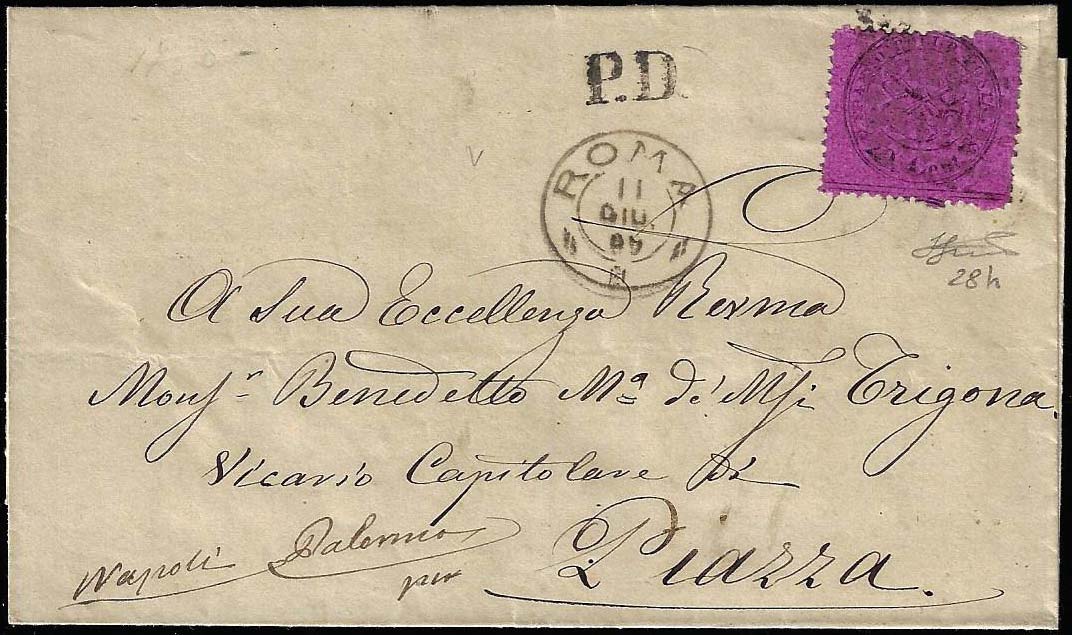 P.D.
ROMA
11
GIU.
28h
A Sua Eccellenza Rexma
Monsr Benedetto Ma de' Msi Trigona.
Vicario Capitolare di
Piazza.
Napoli Palermo
per